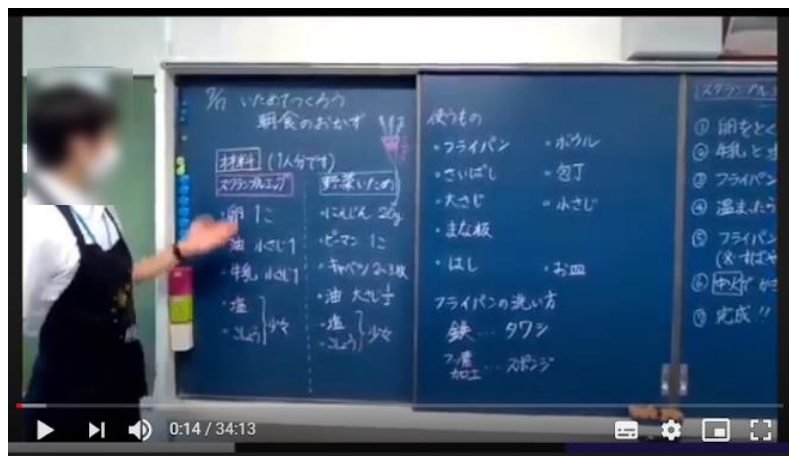 9/17 いためてつくろう
朝食のおかず
材料 (1人分です)
スクランブルエッグ
・卵 1こ
・油 小さじ1
・牛乳 小さじ1
・塩
・こしょう 少々
野菜いため
・にんじん 20g
・ピーマン 1こ
・キャベツ 2〜3枚
・油 大さじ1/2
・塩
・こしょう 少々
使うもの
・フライパン ・ボウル
・さいばし ・包丁
・大さじ ・小さじ
・まな板
・はし ・お皿
フライパンの洗い方
鉄…タワシ
フッ素加工…スポンジ
スクランブルエ
① 卵をとく
② 牛乳と
③ フライパン
④ 温まったら
⑤ フライパン
⑥ 中火で
⑦ 完成!!
0:14 / 34:13